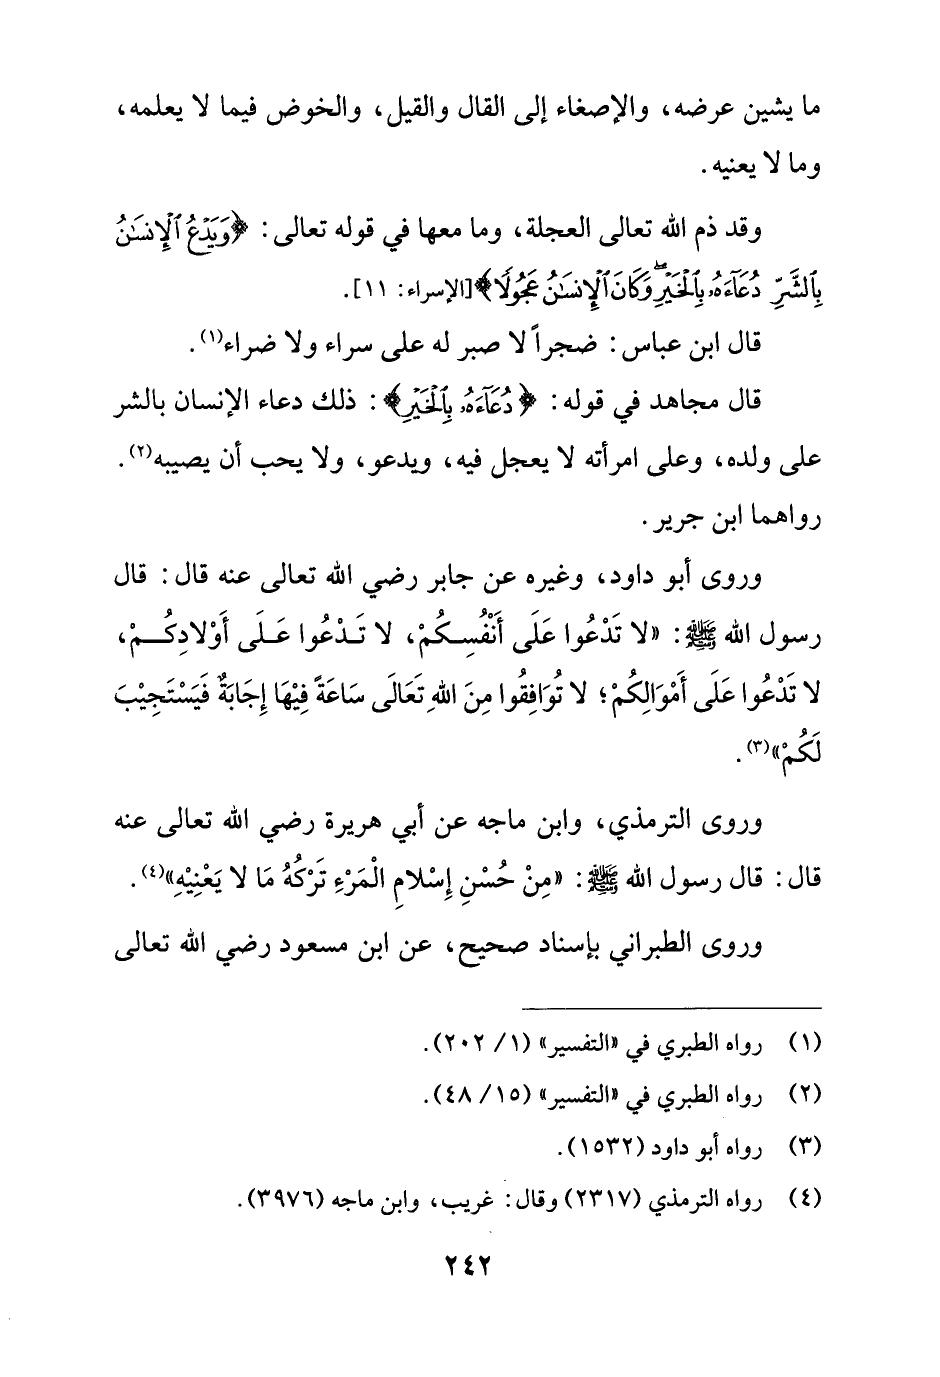 ما يشين عرضه، والإصغاء إلى القال والقيل، والخوض فيما لا يعلمه،
وما لا يعنيه.
وقد ذم الله تعالى العجلة، وما معها في قوله تعالى: ﴿وَيَدۡعُ ٱلۡإِنسَٰنُ
بِٱلشَّرِّ دُعَآءَهُۥ بِٱلۡخَيۡرِۖ وَكَانَ ٱلۡإِنسَٰنُ عَجُولٗا﴾ [الإسراء: ١١].
قال ابن عباس: ضجراً لا صبر له على سراء ولا ضراء(١).
قال مجاهد في قوله: ﴿دُعَآءَهُۥ بِٱلۡخَيۡرِ﴾: ذلك دعاء الإنسان بالشر
على ولده، وعلى امرأته لا يعجل فيه، ويدعو، ولا يحب أن يصيبه(٢).
رواهما ابن جرير.
وروى أبو داود، وغيره عن جابر رضي الله تعالى عنه قال: قال
رسول الله ﷺ: «لا تَدْعُوا عَلَى أَنْفُسِكُمْ، لا تَدْعُوا عَلَى أَوْلادِكُمْ،
لا تَدْعُوا عَلَى أَمْوَالِكُمْ؛ لا تُوَافِقُوا مِنَ اللهِ تَعَالَى سَاعَةً فِيْهَا إِجَابَةٌ فَيَسْتَجِيْبَ
لَكُمْ»(٣).
وروى الترمذي، وابن ماجه عن أبي هريرة رضي الله تعالى عنه
قال: قال رسول الله ﷺ: «مِنْ حُسْنِ إِسْلامِ الْمَرْءِ تَرْكُهُ مَا لا يَعْنِيْهِ»(٤).
وروى الطبراني بإسناد صحيح، عن ابن مسعود رضي الله تعالى
(١) رواه الطبري في «التفسير» (١/ ٢٠٢).
(٢) رواه الطبري في «التفسير» (١٥/ ٤٨).
(٣) رواه أبو داود (١٥٣٢).
(٤) رواه الترمذي (٢٣١٧) وقال: غريب، وابن ماجه (٣٩٧٦).
٢٤٢